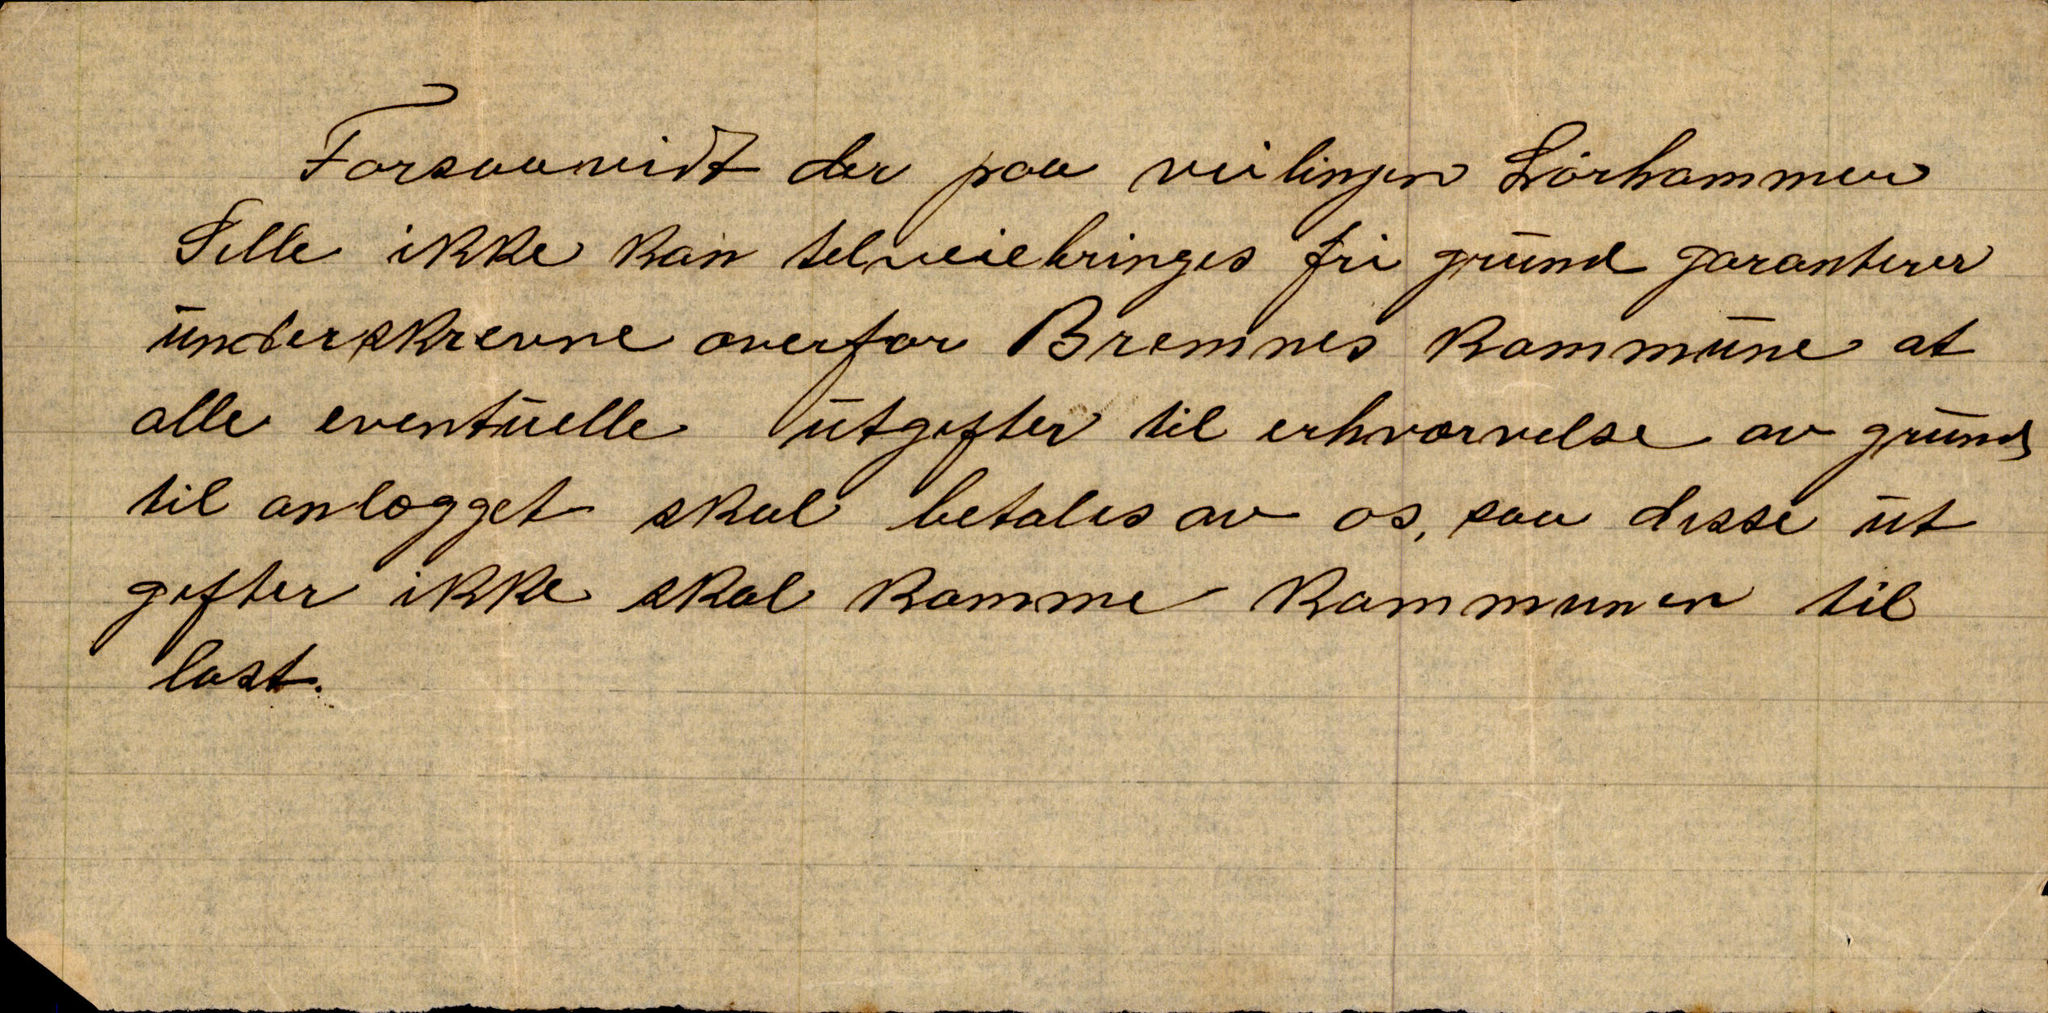 Forsaavidt der paa veilingen Lørhammer
Selle ikke kan tilveiebringes fri grund garanterer
underskrevne overfor Bremnes kommune at
alle eventuelle utgifter til erhvervelse av grund
til anlægget skal betales av os, saa disse ut
gifter ikke skal komme kommunen til
last.